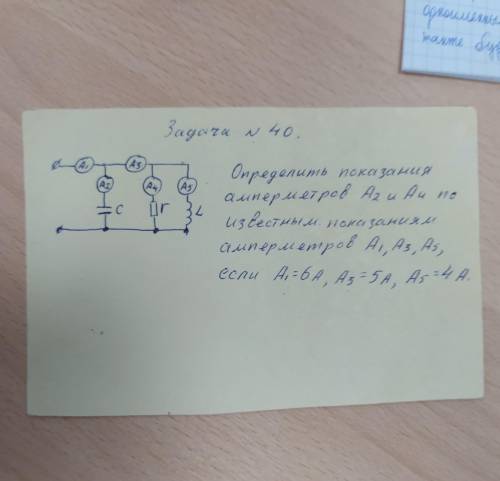 одноименны
также
Задача № 40.
A1
A3
A2
A4
A5
C
r
L
Определить показания
амперметров A2 и A4 по
известным показаниям
амперметров A1, A3, A5,
если A1=6A, A3=5A, A5=4A.